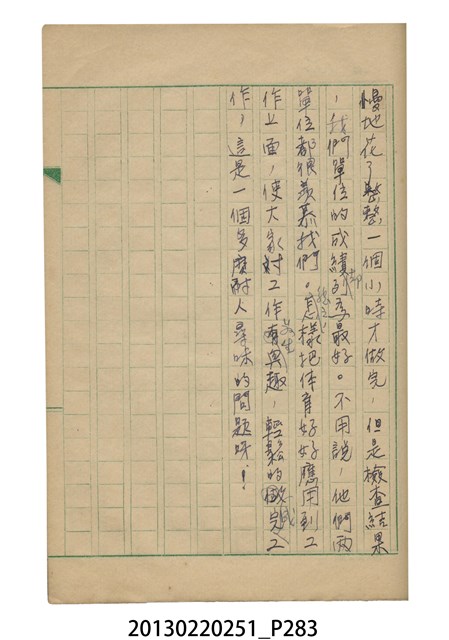 慢地花了整整一個小時才做完，但是檢查結果
，我們單位的成績却列為最好。不用說，他們兩
單位都很羨慕我們。怎樣把体育好好應用到工
作上面，使大家對工作發生興趣，輕鬆的完成工
作，這是一個多麼耐人尋味的問題呀！
20130220251_P283